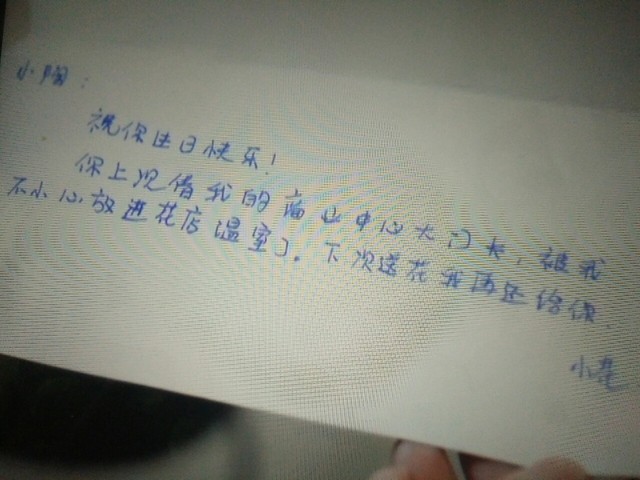 小陶：
祝你生日快乐！
你上次借我的商业中心大门卡，被我
不小心放进花店温室了。下次送花我再还给你。
小花